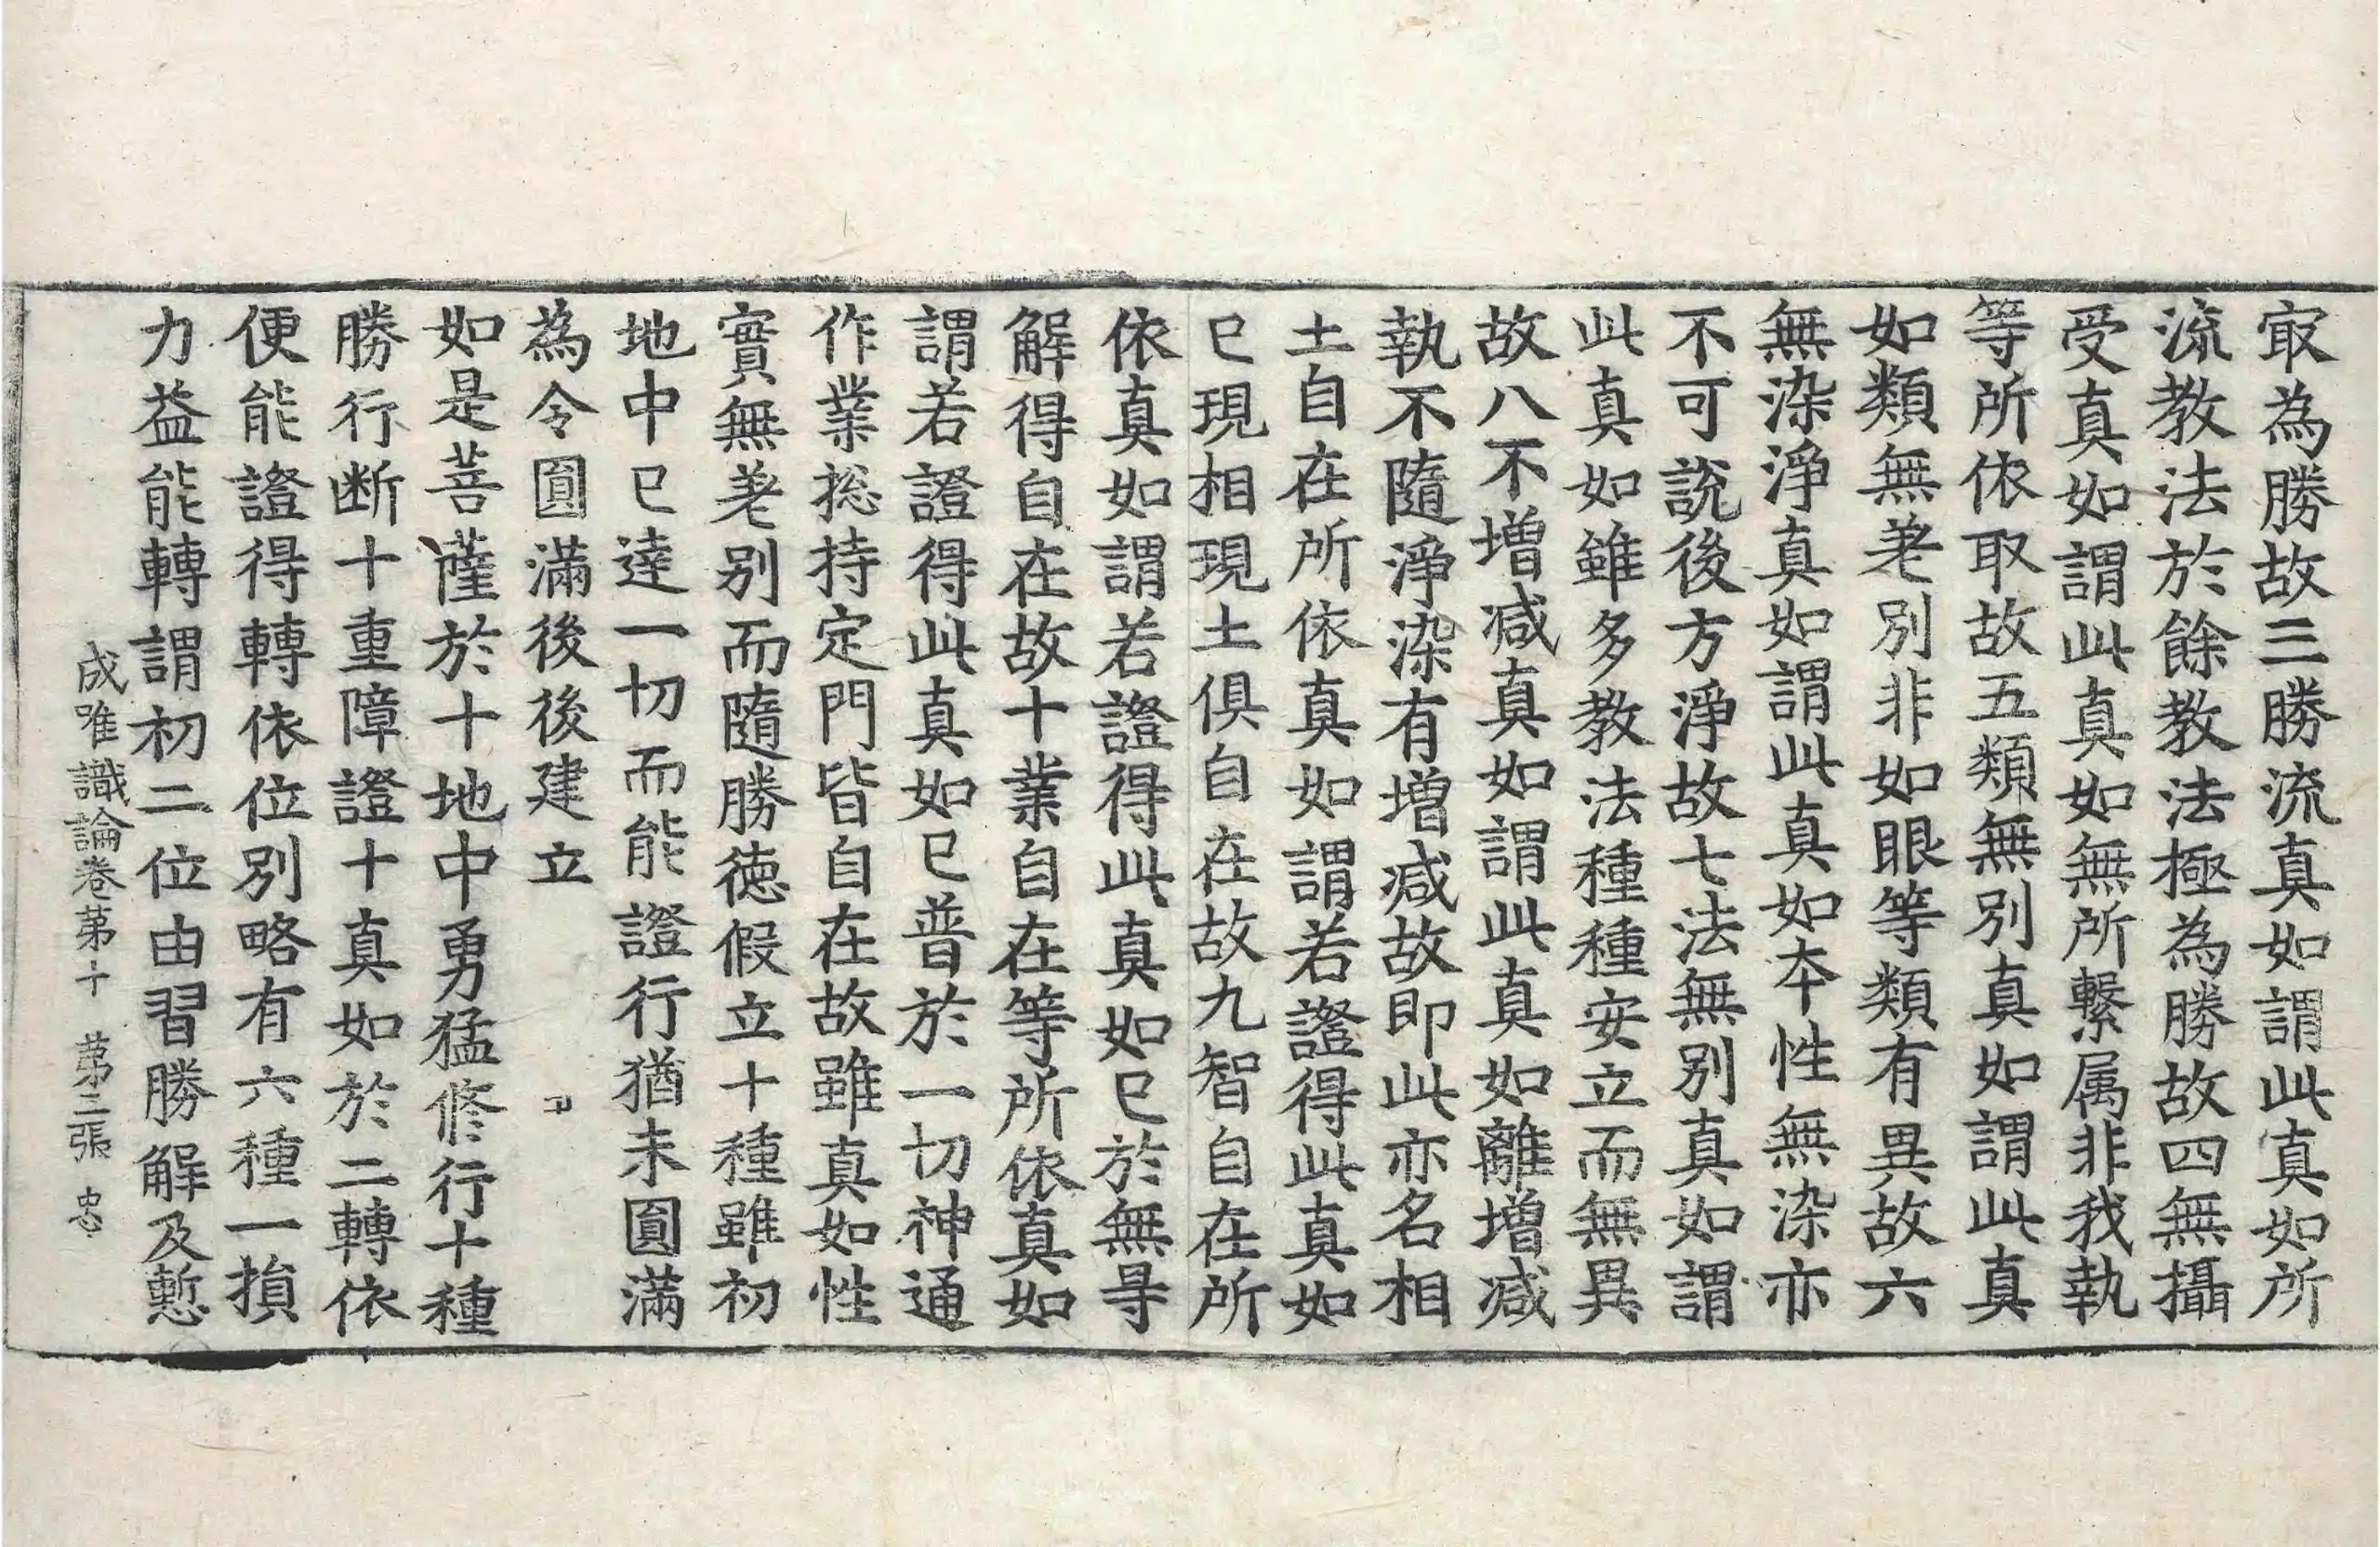 㝡為勝故三勝流真如謂此真如所
流教法於餘教法極為勝故四無攝
受真如謂此真如無所繫属非我執
等所依取故五類無別真如謂此真
如類無差別非如眼等類有異故六
無染淨真如謂此真如本性無染亦
不可說後方淨故七法無別真如謂
此真如雖多教法種種安立而無異
故八不增減真如謂此真如離增減
執不隨淨染有增減故即此亦名相
土自在所依真如謂若證得此真如
已現相現土俱自在故九智自在所
依真如謂若證得此真如已於無㝵
解得自在故十業自在等所依真如
謂若證得此真如已普於一切神通
作業捴持定門皆自在故雖真如性
實無差別而隨勝德假立十種雖初
地中已達一切而能證行猶未圓滿
為令圓滿後後建立
如是菩薩於十地中勇猛修行十種
勝行断十重障證十真如於二轉依
便能證得轉依位別略有六種一損
力益能轉謂初二位由習勝解及慙
成唯識論卷第十　第二張　忠